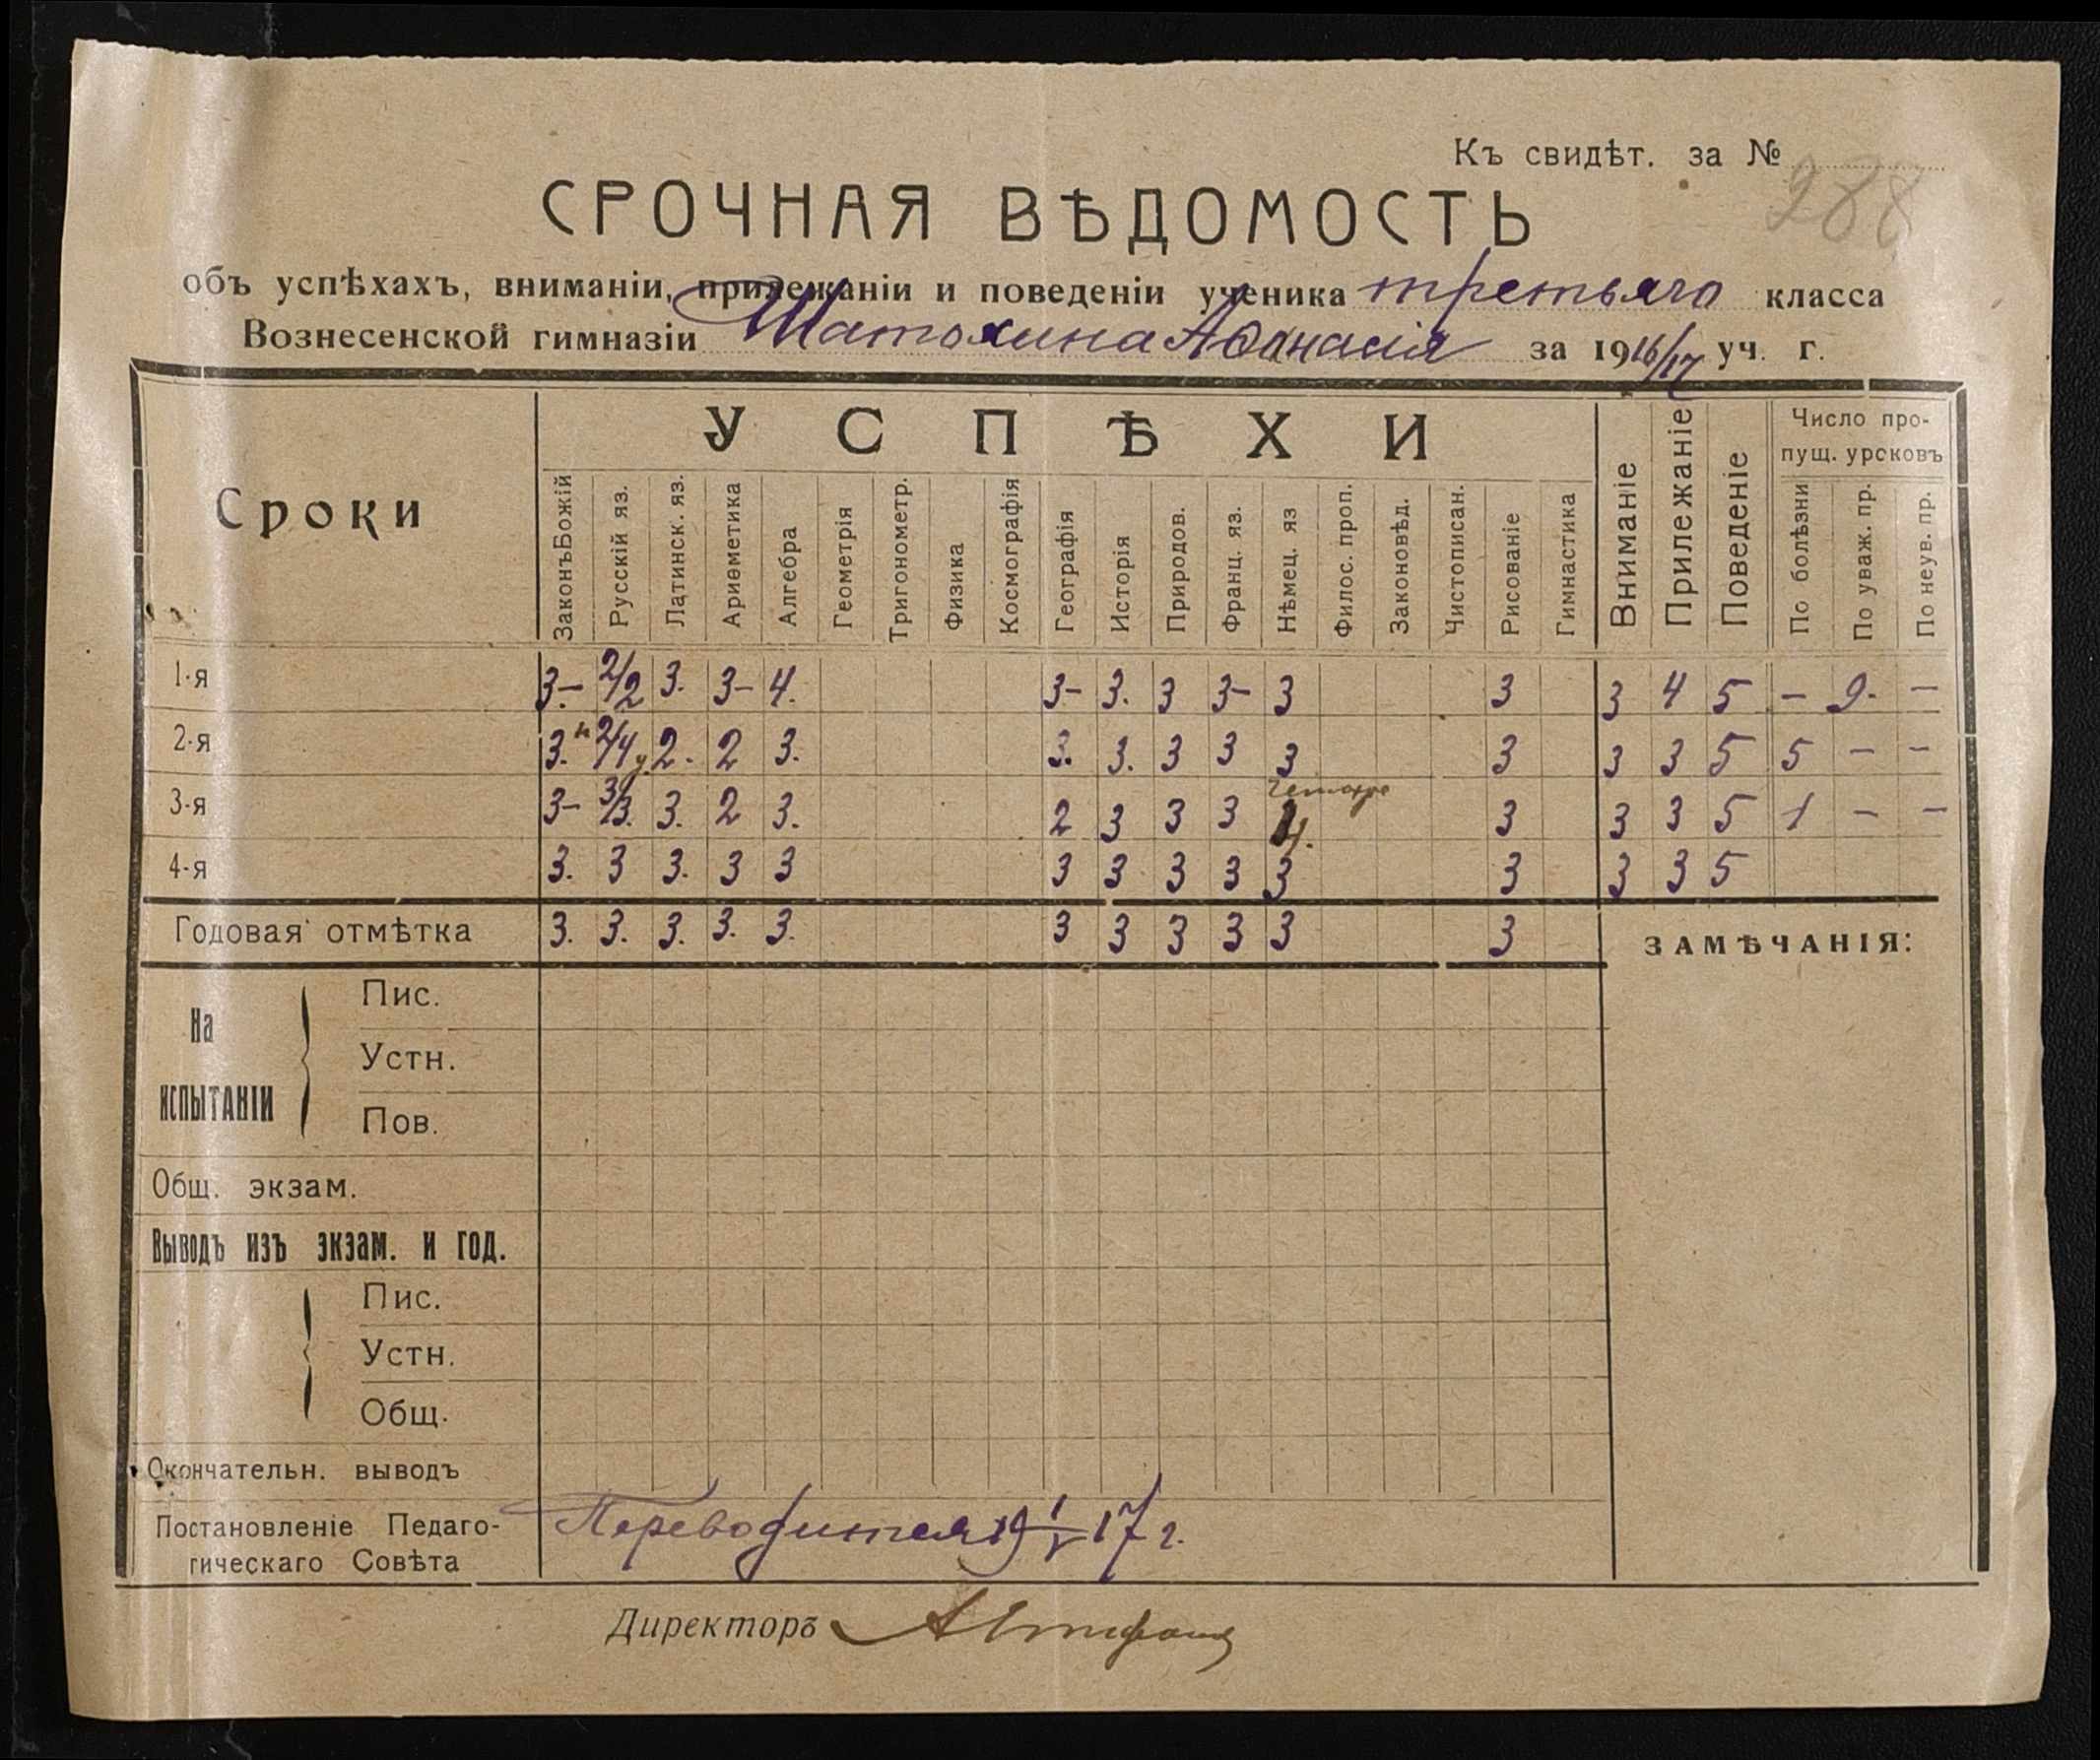 Къ свидѣт. за №
288
СРОЧНАЯ ВѢДОМОСТЬ
объ успѣхахъ, вниманіи, прилежаніи и поведеніи ученика третьяго класса
Вознесенской гимназіи Шатохина Аѳанасія за 1916/17 уч. г.
Сроки
УСПѢХИ
ЗаконъБожій
Русскій яз.
Латинск. яз.
Ариѳметика
Алгебра
Геометрія
Тригонометр.
Физика
Космографія
Географія
Исторія
Природов.
Франц. яз.
Нѣмец. яз
Филос. проп.
Законовѣд.
Чистописан.
Рисованіе
Гимнастика
Вниманіе
Прилежаніе
Поведеніе
Число про-
пущ. урсковъ
По болѣзни
По уваж. пр.
По неув. пр.
1-я 3.– 2/2 3. 3– 4. 3– 3. 3 3– 3 3 3 4 5 – 9. –
2-я 3. 2/4 2. 2 3. 3. 3. 3 3 3 3 3 3 5 5 – –
четыре
3-я 3– 3/3. 3. 2 3. 2 3 3 3 4. 3 3 3 5 1 – –
4-я 3. 3 3. 3 3 3 3 3 3 3 3 3 3 5
Годовая отмѣтка 3. 3. 3. 3. 3. 3 3 3 3 3 3
ЗАМѢЧАНІЯ:
На
испытаніи
Пис.
Устн.
Пов.
Общ. экзам.
Выводъ изъ экзам. и год.
Пис.
Устн.
Общ.
Окончательн. выводъ
Постановленіе Педаго-
гическаго Совѣта
Переводится 19 1/V 17 г.
Директоръ